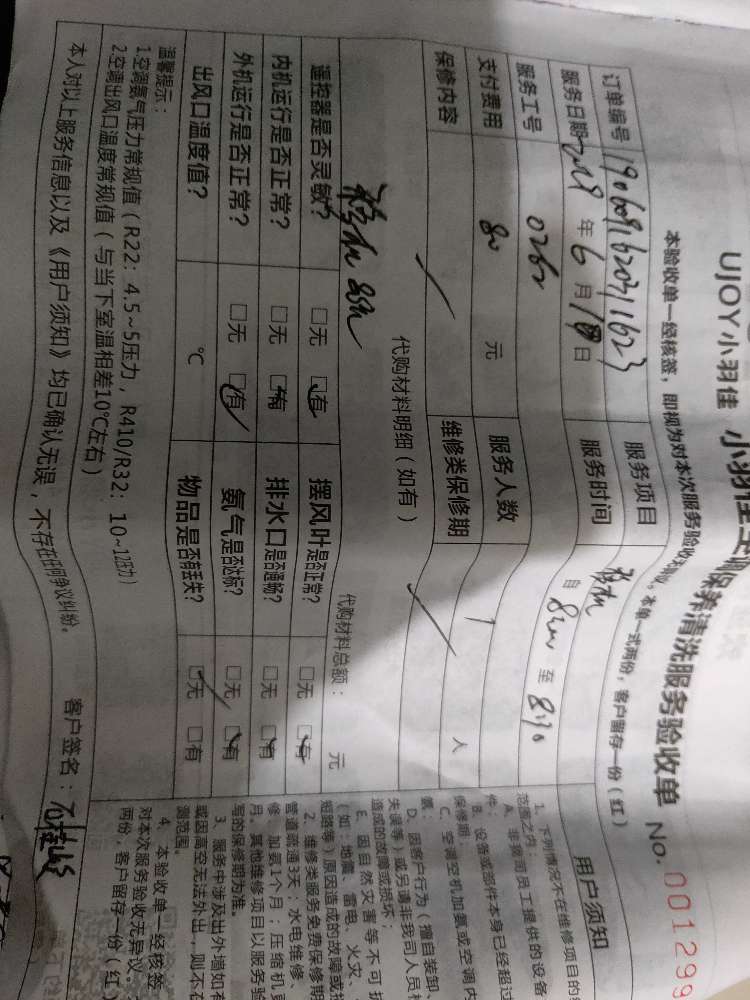 UJOY小羽佳
保养清洗服务验收单 No. 001299
本验收单一经核签，即视为对本次服务验收无异议。本单一式两份，客户留存一份（红）
订单编号 服务项目
服务日期 年 6 月 日 服务时间 自 至
服务工号 0262 服务人数 1 人
支付费用 80 元 维修类保修期
保修内容
代购材料明细（如有）
代购材料总额： 元
遥控器是否灵敏？ □无 □有 摆风叶是否正常？ □无 □有
内机运行是否正常？ □无 □有 排水口是否通畅？ □无 □有
外机运行是否正常？ □无 □有 氨气是否达标？ □无 □有
出风口温度值？ ℃ 物品是否有丢失？ □无 □有
温馨提示：
1.空调氨气压力常规值（R22：4.5~5压力，R410/R32：10~12压力）
2.空调出风口温度常规值（与当下室温相差10℃左右）
本人对以上服务信息以及《用户须知》均已确认无误，不存在任何争议纠纷。
客户签名：
用户须知
1、下列情况不在维修项目的
范围之内：
A、非我司员工提供的设备
件；
B、设备或部件本身已经超过
保修期；
C、空调空机加氨或空调内
氨；
D、因客户行为（擅自装卸、
失误等）或另请非我司人员
造成的故障或损坏；
E、因自然灾害等不可
（如：地震、雷电、火灾、
短路等）原因造成的故障或
2、维修类服务免费保修期
管道疏通3天；水电维修、
修、加氨1个月；压缩机
月，其他维修项目以服务
写的保修期为准。
3、服务中涉及出外墙如有
或因高空无法外出，则不在
测范围。
4、本验收单一经核签，
对本次服务验收无异议
两份，客户留存一份（红）